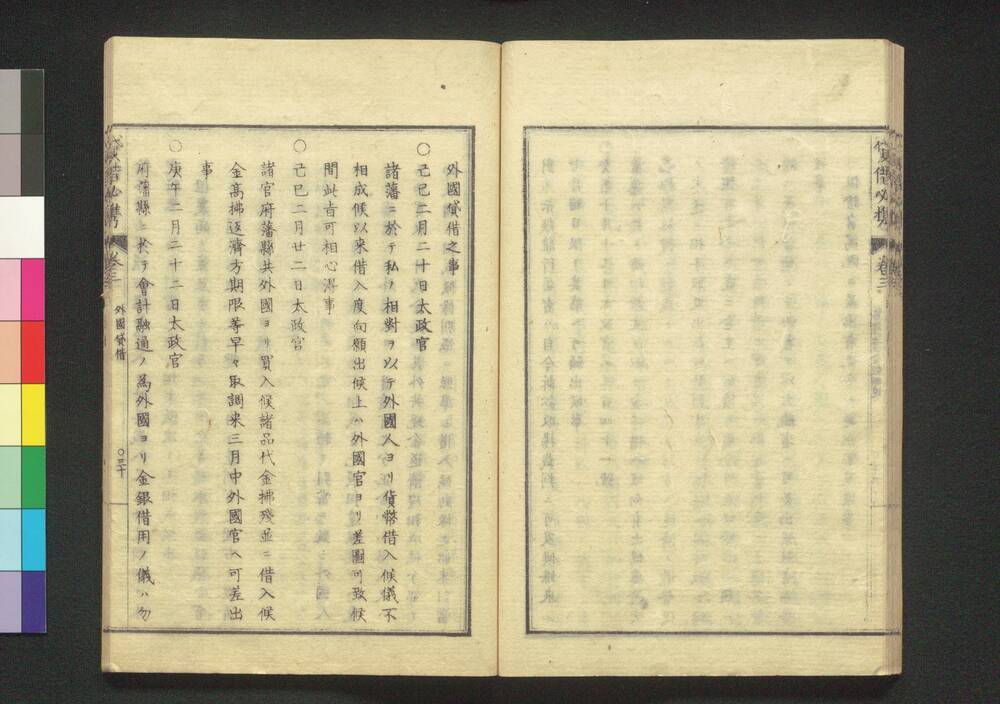 貸借必携
卷三
外國貸借之事
〇己巳二月二十日太政官
諸藩ニ於テ私ノ相對ヲ以テ外國人ヨリ貨幣借入候儀不
相成候以来借入度向願出候上ハ外國官ヨリ差圖可致候
間此旨可相心得事
〇己巳二月廿二日太政官
諸官府藩縣共外國ヨリ買入候諸品代金拂殘並ニ借入候
金高拂返濟方期限等早々取調来三月中外國官ヘ可差出
事
〇庚午二月二十二日太政官
府藩縣ニ於テ會計融通ノ為外國ヨリ金銀借用ノ儀ハ勿
貸借必携
卷三
外國貸借
〇三十